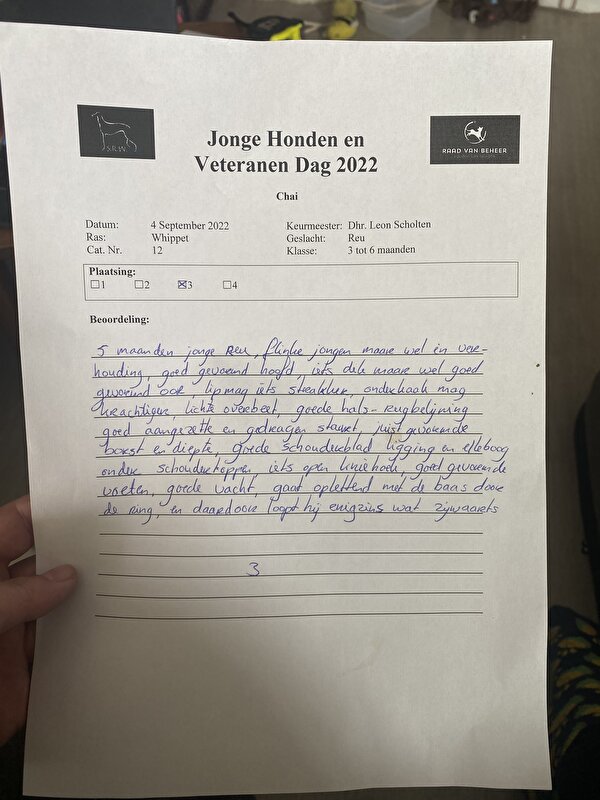 S.R.W
RAAD VAN BEHEER
Jonge Honden en
Veteranen Dag 2022
Chai
Datum: 4 September 2022 Keurmeester: Dhr. Leon Scholten
Ras: Whippet Geslacht: Reu
Cat. Nr. 12 Klasse: 3 tot 6 maanden
Plaatsing:
☐1 ☐2 ☒3 ☐4
Beoordeling:
5 maanden jonge Reu, flinke jongen maare wel in ver-
houding, goed gevormd hoofd, iets dele maare wel goed
gevormd oor, lip mag iets strakker, onderkaak mag
krachtiger, lichte overbeet, goede hals-rugbelijning
goed aangezette en gedragen staart, juist gevormde
borst en diepte, goede schouderblad ligging en elleboog
onder schoudertoppen, iets open kniehoek, goed gevormde
voeten, goede vacht, gaat oplettend met de baas door
de ring, en daardoor loopt hij enigzins wat zijwaarts
3